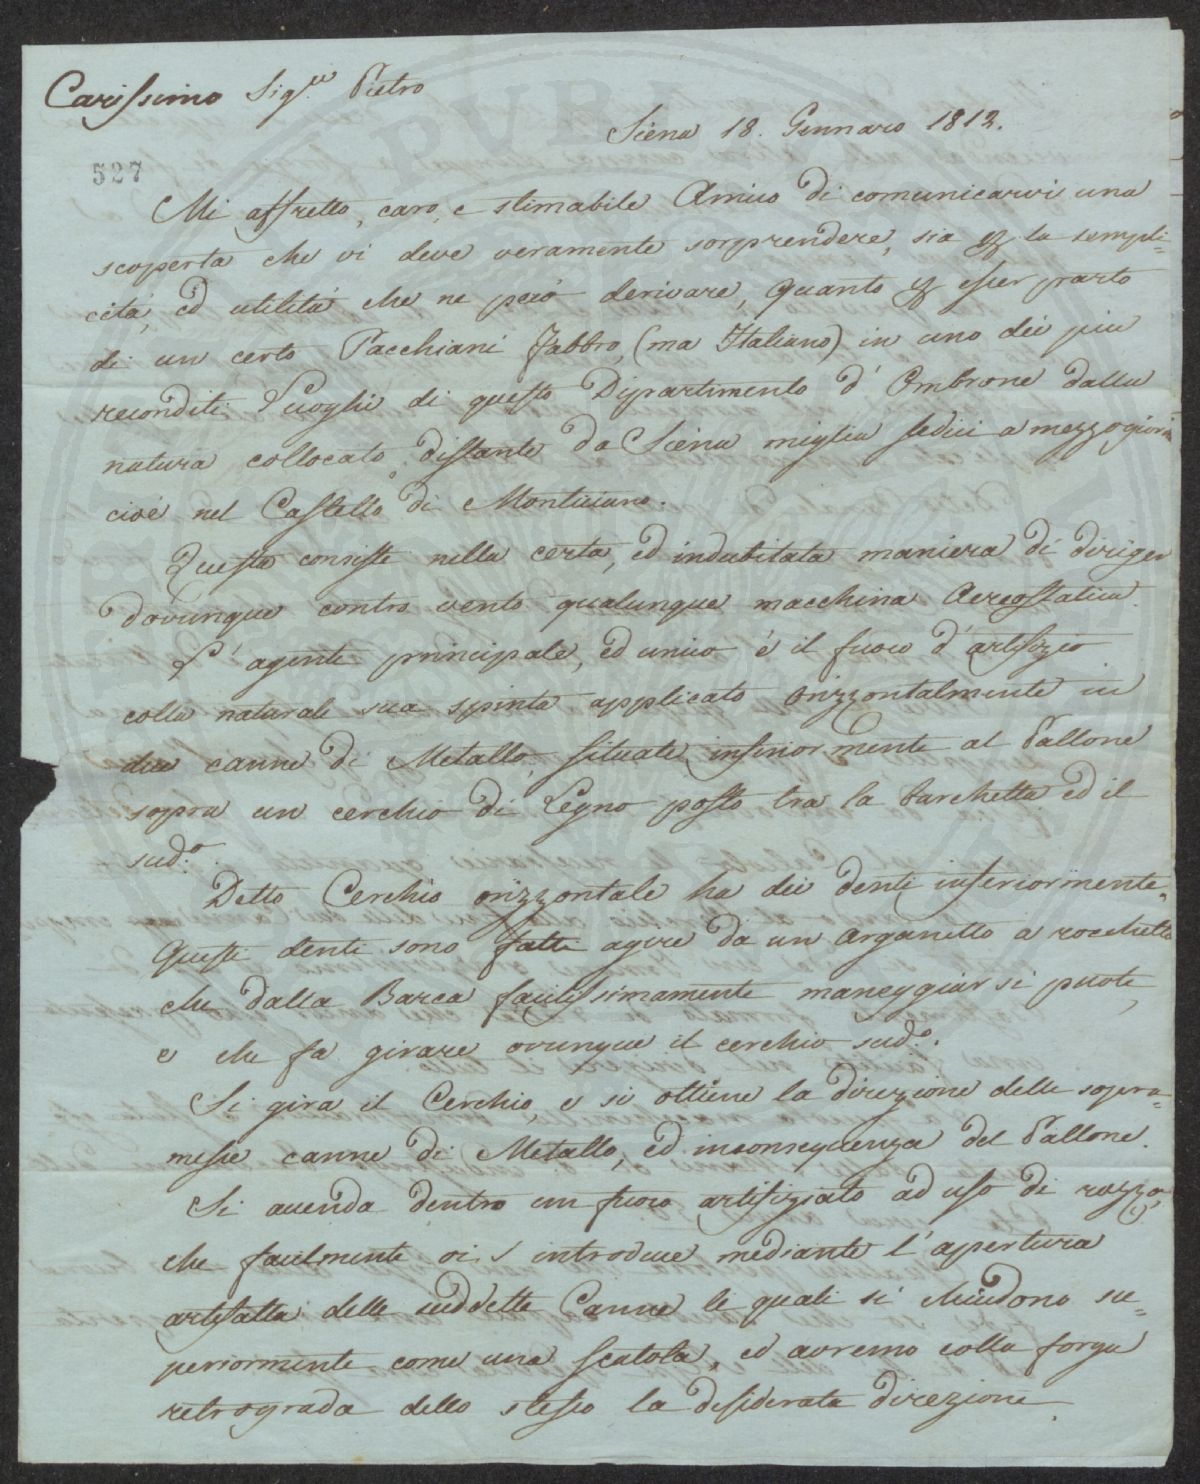 Carissimo Sig.re Pietro
Siena 18. Gennaro 1812.
527
Mi affretto, caro, e stimabile Amico di comunicarvi una
scoperta che vi deve veramente sorprendere, sia per la sempli=
cità, ed utilità che ne può derivare, quanto per esser parto
di un certo Pacchiani Fabbro, (ma Italiano) in uno dei piu
reconditi Luoghi di questo Dipartimento d'Ombrone dalla
natura collocato, distante da Siena miglia sedici a mezzogiorno
cioè nel Castello di Monticiano.
Questa consiste nella certa, ed indubitata maniera di diriger
dovunque contro vento qualunque macchina Aereostatica.
L'agente principale, ed unico è il fuoco d'artifizio
colla naturale sua spinta applicato orizzontalmente in
due canne di Metallo, situate inferiormente al Pallone
sopra un cerchio di Legno posto tra la barchetta ed il
sud.o.
Detto Cerchio orizzontale ha dei denti inferiormente.
Questi denti sono fatti agire da un arganetto a rocchetto
che dalla Barca facilissimamente maneggiar si puote,
e che fa girare ovunque il cerchio sud.o.
Si gira il Cerchio, e si ottiene la direzione delle sopra=
messe canne di Metallo, ed inconseguenza del Pallone.
Si accenda dentro un fuoco artifiziato ad uso di razzo,
che facilmente vi s'introduce mediante l'apertura
artefatta delle suddette Canne le quali si chiudono su=
periormente come una scatola, ed avremo colla forza
retrograda dello stesso la desiderata direzione.